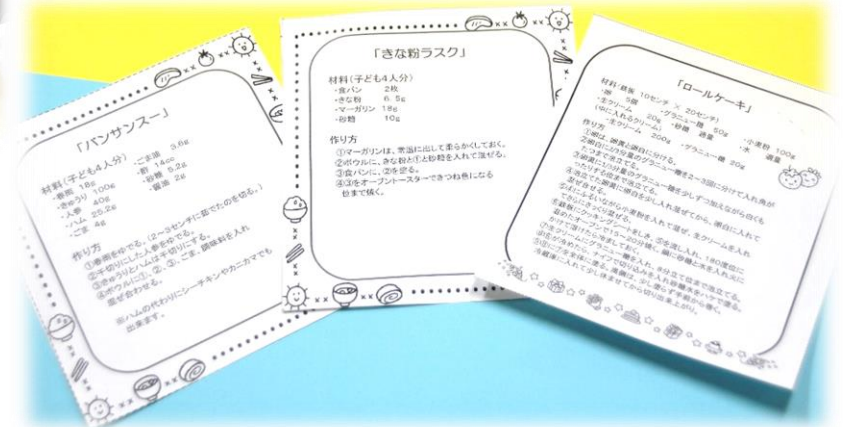 「バンサンスー」
材料(子ども4人分)
・春雨 18g
・きゅうり 100g
・人参 40g
・ハム 25.2g
・ごま 4g
・ごま油 3.6g
・酢 14cc
・砂糖 5.2g
・醤油 2g
作り方
①春雨をゆでる。(2~3センチに茹でたのを切る。)
②千切りにした人参をゆでる。
③きゅうりとハムは千切りにする。
④ボウルに①、②、③、ごま、調味料を入れ
混ぜ合わせる。
※ハムの代わりにシーチキンやカニカマでも
出来ます。
「きな粉ラスク」
材料(子ども4人分)
・食パン 2枚
・きな粉 6.5g
・マーガリン 18g
・砂糖 10g
作り方
①マーガリンは、常温に出して柔らかくしておく。
②ボウルに、きな粉と①と砂糖を入れて混ぜる。
③食パンに、②を塗る。
④③をオーブントースターできつね色になる
位まで焼く。
「ロールケーキ」
材料(鉄板 10センチ × 20センチ)
・卵 5個 ・グラニュー糖 50g ・小麦粉 100g
・生クリーム 20g ・砂糖 適量 ・水 適量
(中に入れるクリーム)
・生クリーム 200g ・グラニュー糖 20g
作り方
①卵は、卵黄と卵白に分ける。
②卵白に2/3分量のグラニュー糖を2~3回に分けて入れ角が
たつまで泡立てる。
③卵黄に1/3分量のグラニュー糖を少しずつ加えながら白くも
ったりする位まで泡立てる。
④泡立てた卵黄に卵白を少し入れ混ぜてから、卵白に入れて
混ぜ合せる。